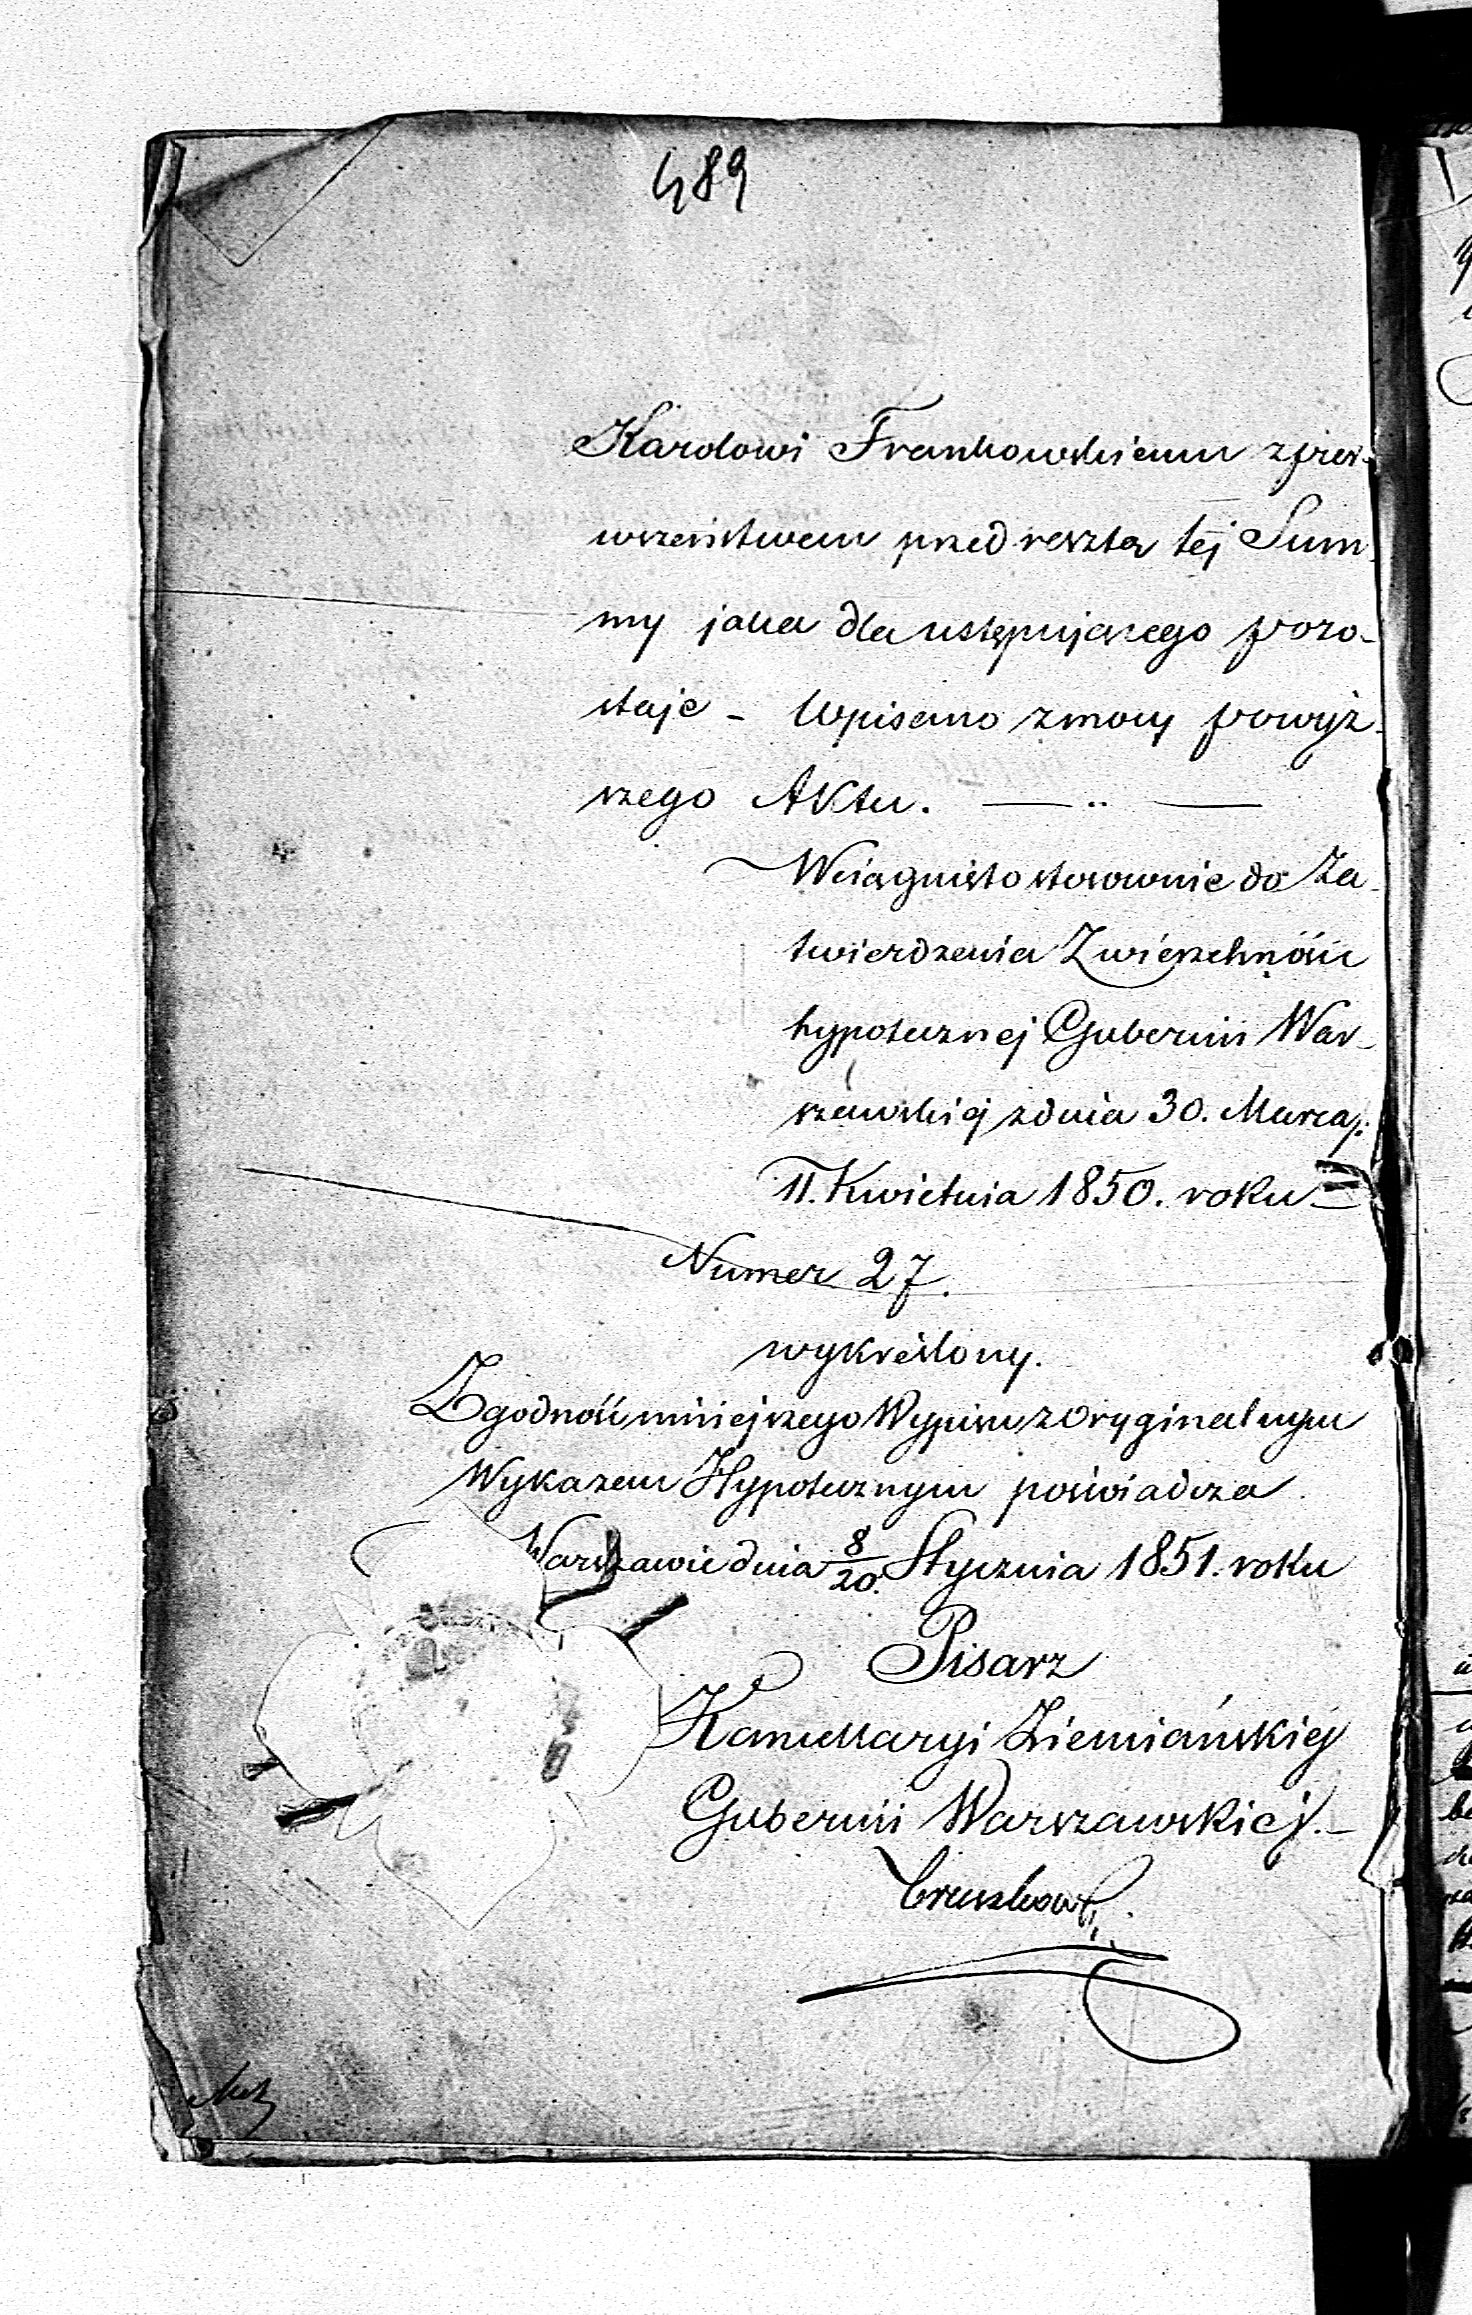 489
Karolowi Frankowskiemu z pier-
wszeństwem przed resztą tej Sum-
my jaka dla ustępującego pozo-
staje – Wpisano z mocy powyż-
szego Aktu. — .. —
Wciągnięto stosownie do Za-
twierdzenia Zwierzchności
hypotecznej Gubernii War-
szawskiej z dnia 30. Marca/:
11. Kwietnia 1850. roku –
Numer 27.
wykreślony.
Zgodność niniejszego Wypisu z Oryginalnym
Wykazem Hypotecznym poświadcza
Warszawie dnia 8/20. Stycznia 1851. roku
Pisarz
Kancellaryi Ziemiańskiej
Gubernii Warszawskiej. –